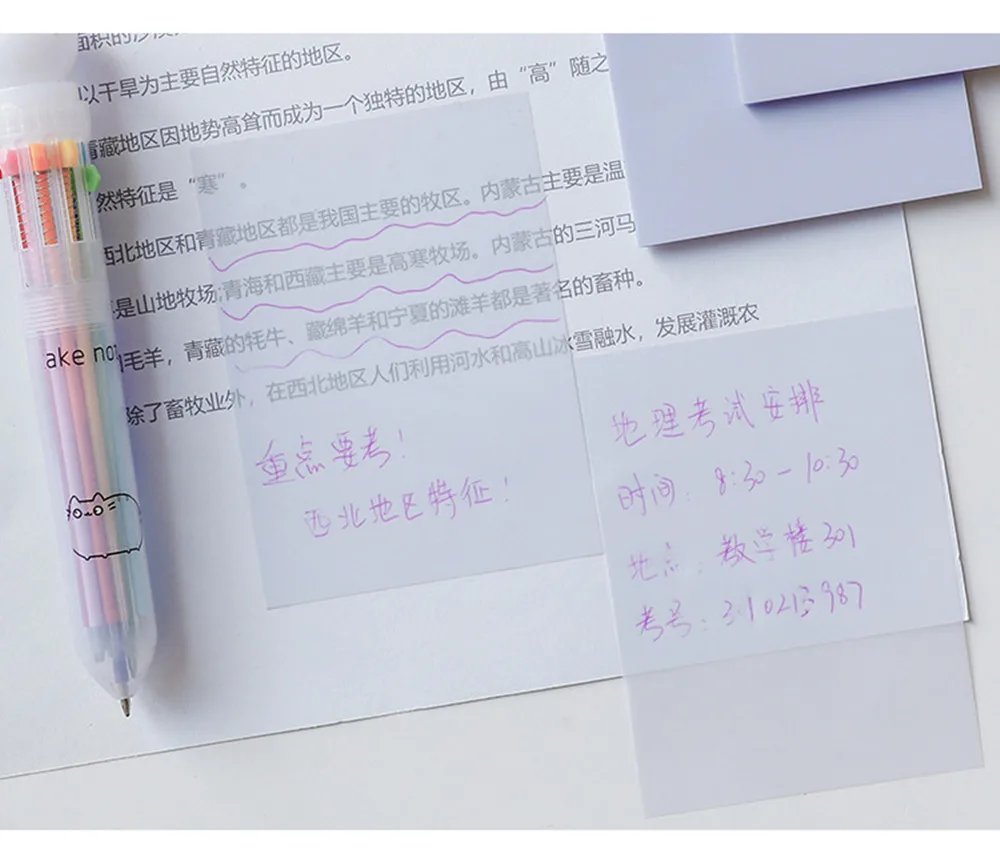 以干旱为主要自然特征的地区。
青藏地区因地势高耸而成为一个独特的地区，由“高”随之
然特征是“寒”。
西北地区和青藏地区都是我国主要的牧区。内蒙古主要是温
是山地牧场;青海和西藏主要是高寒牧场。内蒙古的三河马
毛羊，青藏的牦牛、藏绵羊和宁夏的滩羊都是著名的畜种。
除了畜牧业外，在西北地区人们利用河水和高山冰雪融水，发展灌溉农
重点要考！
西北地区特征！
地理考试安排
时间：8:30－10:30
地点：教学楼301
考号：
ake no